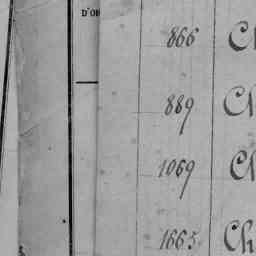 D'OR
866 Ch
889 Ch
1069 Ch
1665 Ch